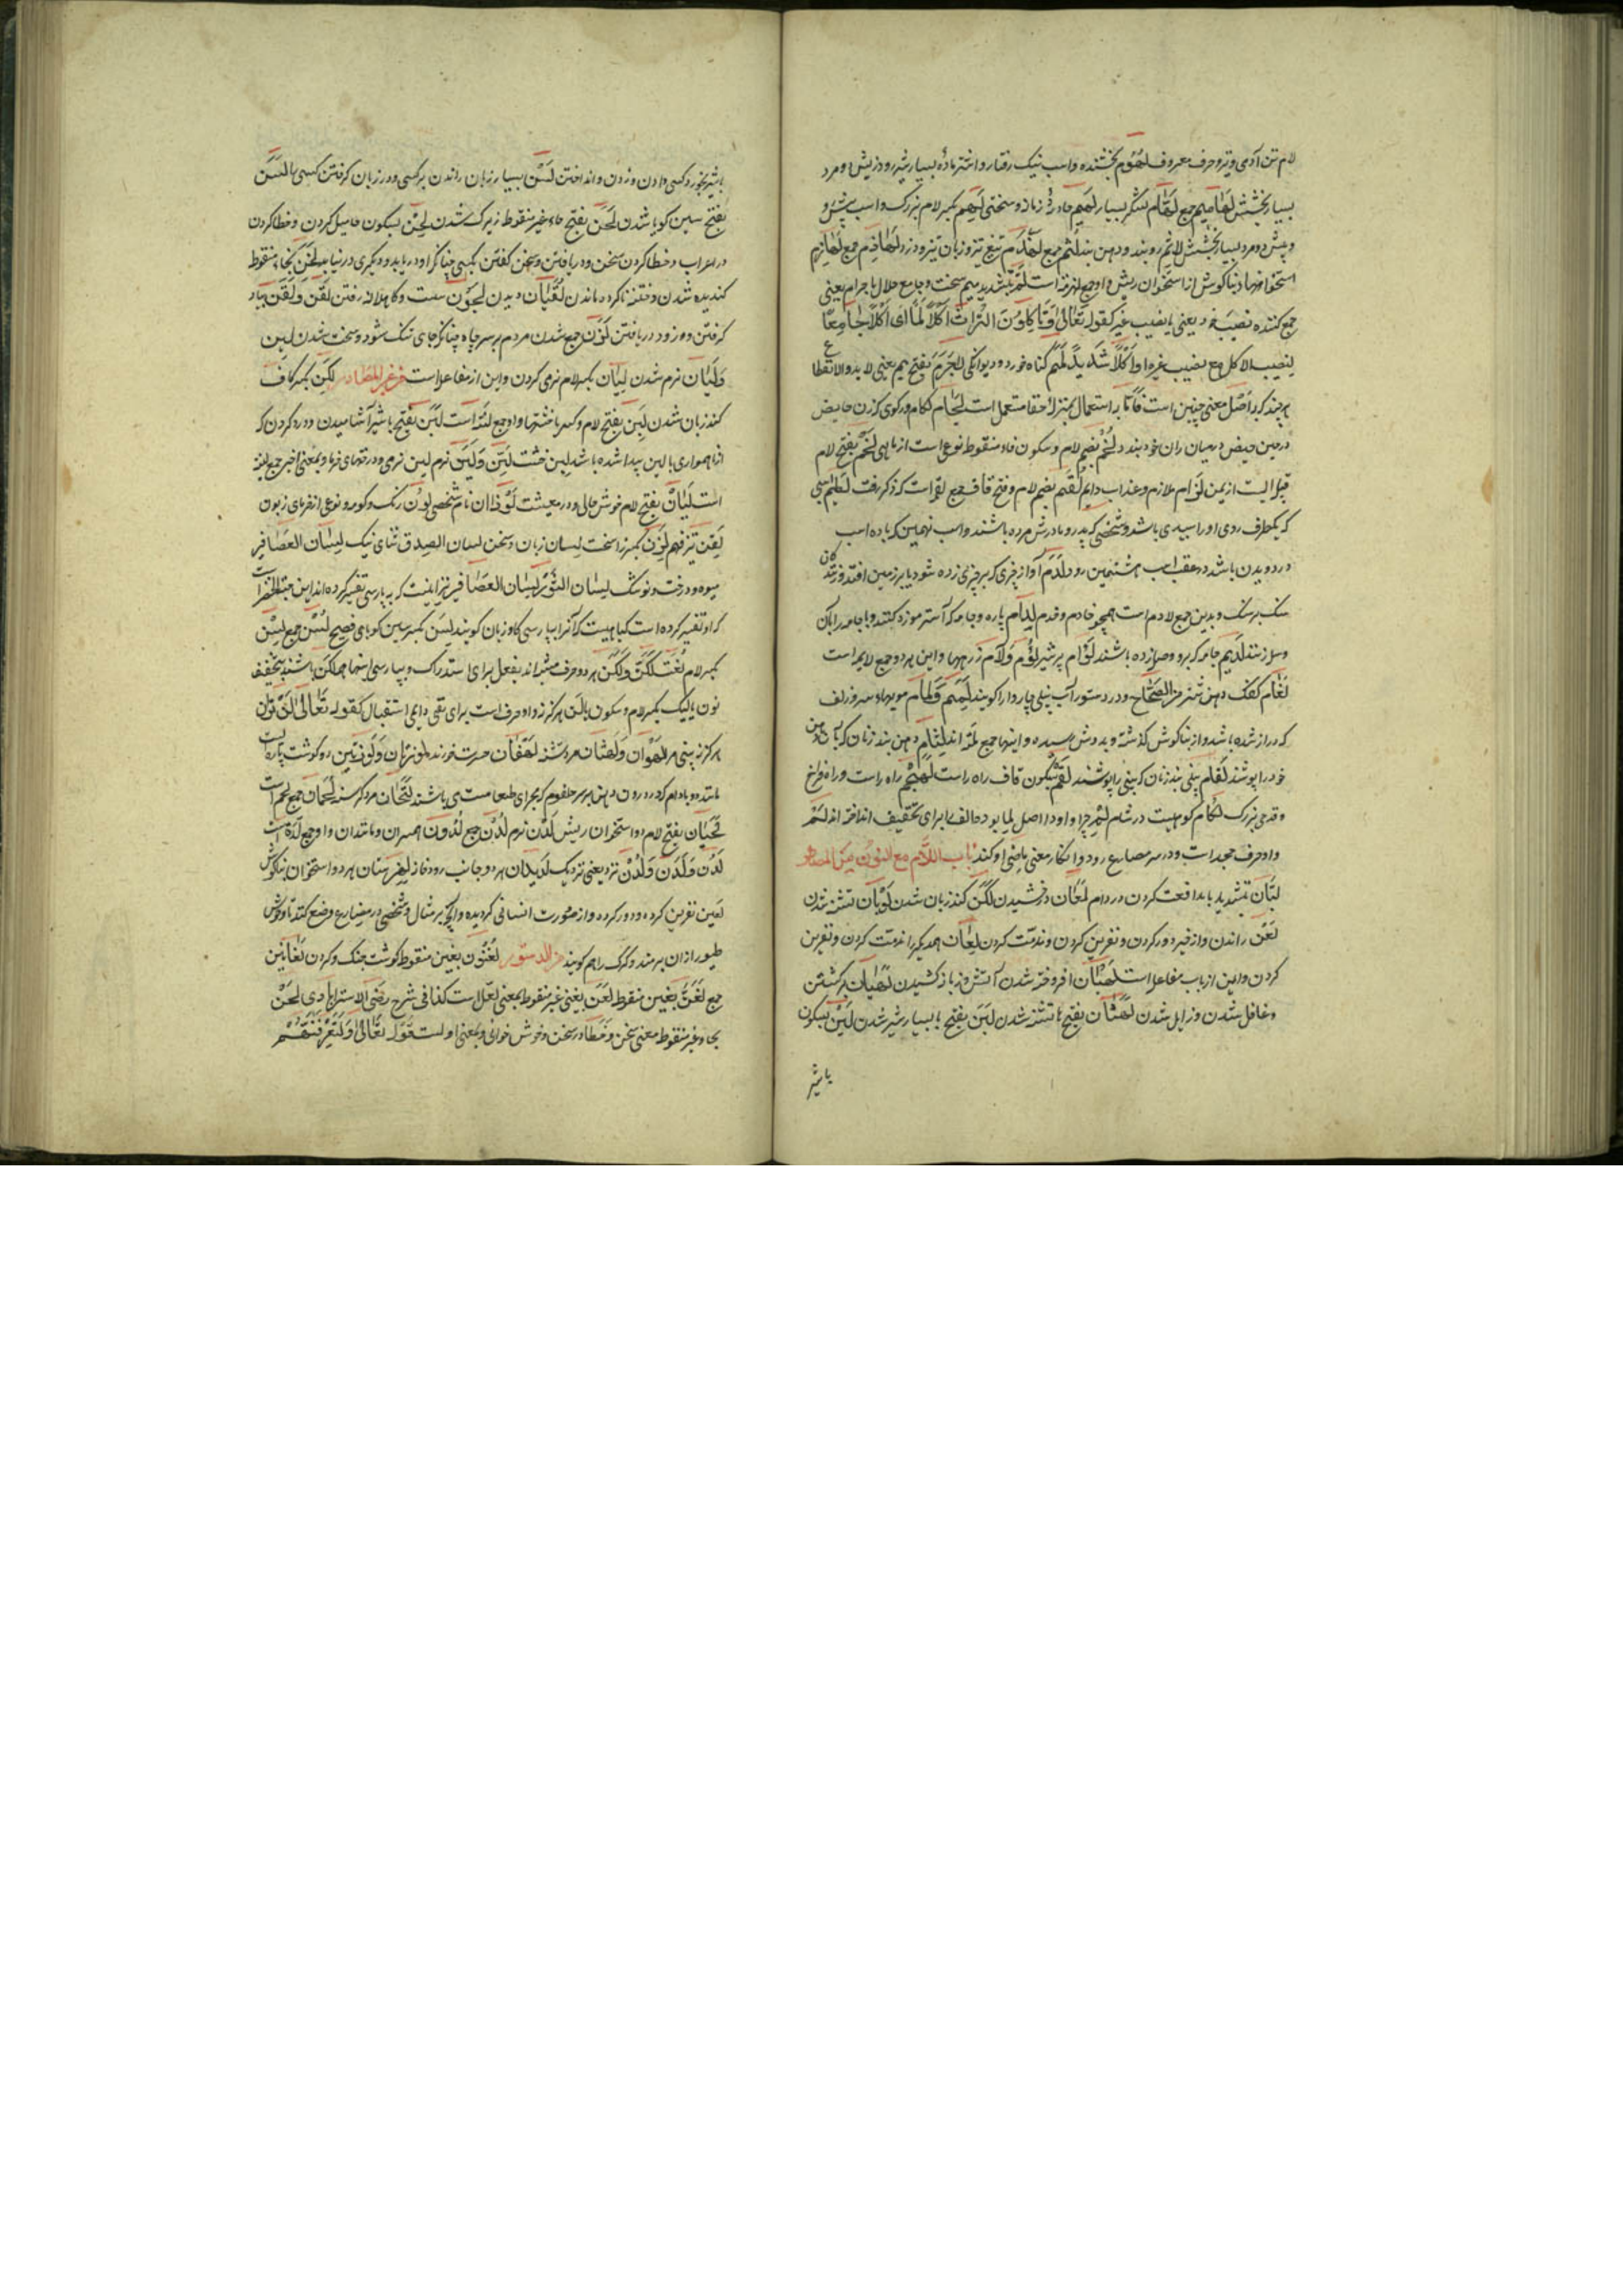 لام تن آدمی و تیر و حرف معروف لهموم بخشنده و اسب نیک رفتار و اشتر ماده بسیار شیر رود ریش و مرد
بسیار بخشش لهامیم جمع لهام لشکر بسیار لهیم حادثه زمانه و سختی لهم بکسر لام بزرک و اسب پیش رو
و پیش رو مرد بسیار بخشش لاثم روبند و دهن بند لثم جمع لهذم تیغ تیز و زبان تیز و دزد لهاذم جمع لهازم
استخوانهاء بناکوش از استخوان ریش و او جمع لهزمه است لم بتشدید میم سخت و جامع حلال با حرام یعنی
جمع کننده نصیب خود یعنی با نصیب غیر کقوله تعالی و تاکلون التراث اکلا لما ای اکلا جامعا
لنصیب الاکل مع نصیب غیره او اکلا شدیدا لمم کناه خورد و دیوانکی لاجرم بفتح جیم یعنی لابد و لا انقطاع
هر چند که در اصل معنی چنین است فاما به استعمال بمنزلهٔ حقا مستعمل است لجام لکام و رکوی که زن حایض
در حین حیض در میان ران خود بندد لخم بضم لام و سکون خاء منقوطه نوعی است از ماهی لخم بفتح لام
قبیله ایست از یمن لزام ملازم و عذاب دایم لقم بضم لام و فتح قاف جمع لقمه است که ذکر رفت لطیم اسبی
که یکطرف روی او را سپیدی باشد و شخصی که پدر و مادرش مرده باشند و اسب نهمین که باده اسب
در دویدن باشد و در عقب اسب هشتمین رود لدم آواز چیزی که بر چیزی زده شود یا بر زمین افتد
سنک بر سنک و بدین جمع لادم است همچو خادم و خدم لدام پاره و جامه که آستر موزه کنند و یا جامه را بآن
وصل زنند لدیم جامه که برو وصله زده باشند لؤام پر تیر لؤم و لام زرهها و این هر دو جمع لامه است
لغام کفک دهن شتر من الصحاح و در دستور آب بینی چاروا را کویند لمم و لمام مویهاء سر و زلف
که دراز شده باشد و از بناکوش کذشته و بدوش رسیده و اینها جمع لمه اند لثام دهن بند زنان که بآن دهن
خود را پوشند لفام بینی بند زنان که بینی را پوشند لقم بسکون قاف راه راست لهجم راه راست و راه فراخ
و قدحی بزرک لکام کوهیست در شام لم چرا و او در اصل لما بود و الف را برای تخفیف انداخته اند لم
و او حرف جحد است و در سر مضارع رود و انکار معنی ماضی او کند باب اللام مع النون من المصادر
لبان بتشدید با مدافعت کردن در وام لمعان درخشیدن لکن کند زبان شدن لوبان تشنه شدن
لعن راندن و از خیر دور کردن و نفرین کردن و مذمت کردن لعان همدیکر را مذمت کردن و نفرین
کردن و این از باب مفاعله است لهبان افروخته شدن آتش و زبانه کشیدن لهیان برکشتن
و غافل شدن و زایل شدن لهثان بفتح ها تشنه شدن لبن بفتح با بسیار شیر شدن لبن بسکون
با شیر
با شیر بخورد کسی دادن و زدن و انداختن لسن بسیار زبان راندن بر کسی و در زبان کرفتن کسی را لسن
بفتح سین کویا شدن لحن بفتح حاء غیر منقوطه زیرک شدن لحن بسکون حا میل کردن و خطا کردن
در اعراب و خطا کردن سخن و دریافتن و سخن کفتن بکسی چنانکه او دریابد و دیکری درنیابد لخن بخاء منقوطه
کندیده شدن و ختنه ناکرده ماندن لقیان دیدن لجون سست و کاهلانه رفتن لقن و لقن بیاد
کرفتن و زود دریافتن لزن جمع شدن مردم بر سر چاه چنانکه جای تنک شود و سخت شدن لین
و لیان نرم شدن لیان بکسر لام نرمی کردن و این از مفاعله است من غیر المصادر لکن بکسر کاف
کند زبان شدن لبن بفتح لام و کسر با خشتها و او جمع لبنه است لبن بفتح با شیر آشامیدن و درد کردن که
از ناهمواری بالین پیدا شده باشد لبن خشت لین و لین نرم لین نرمی و درختهای خرما و بمعنی اخیر جمع لینه
است لیان بفتح لام خوش حالی و در معیشت لوذان نام شخصی لون رنک و کونه و نوعی از خرمای زبون
لقن تیز فهم لزن بکسر زا سخت لسان زبان و سخن لسان الصدق ثنای نیک لسان العصافیر
میوه درخت ونوشک لسان الثور لسان العصافیر نیز اینست که به پارسی تفسیر کرده اند
که او تفسیر کرده است کیاهیست که آنرا بپارسی کاو زبان کویند لسن بکسر سین کویای فصیح لسن جمع لسن
بکسر لام لغت لکن و لکن هر دو حرف مشبه اند بفعل برای استدراک و بپارسی اینها لیکن باشند بتخفیف
نون یا لیک بکسر لام و سکون یا لن هرکز نه و او حرف است برای نفی دایم استقبال کقوله تعالی لن ترانی
هرکز نه بینی مرا لهوان و لهثان مرد تشنه لهفان حسرت خورنده لوزتان و لوزتین دو کوشت پاره است
مانند دو بادام که در درون دهن بر سر حلقوم که مجرای طعامست می باشند لتحان مرد کرسنه لحمان جمع لحم است
لحیان بفتح لام دو استخوان ریش لدن نرم لدن جمع لدون همسران و مانندان و او جمع لدة است
لدن و لدن و لدن نزد یعنی نزدیک لدیدان هر دو جانب رودخانه لهزمتان هر دو استخوان بناکوش
لعین نفرین کرده و دور کرده و از صورت انسانی کردیده و آنچه بر مثال شخصی در مزارع وضع کنند تا وحوش
طیور از آن برمند و کرک را هم کویند من الدستور لغنون بغین منقوطه کوشت جنک و کردن لغانین
جمع لغن بغین منقوطه لعن بعین غیر منقوطه بمعنی لعل است کذا فی شرح رضی الاسترابادی لحن
بحاء غیر منقوطه معنی سخن و خطا در سخن و خوش خوانی و بمعنی اولست قوله تعالی و لتعرفنهم